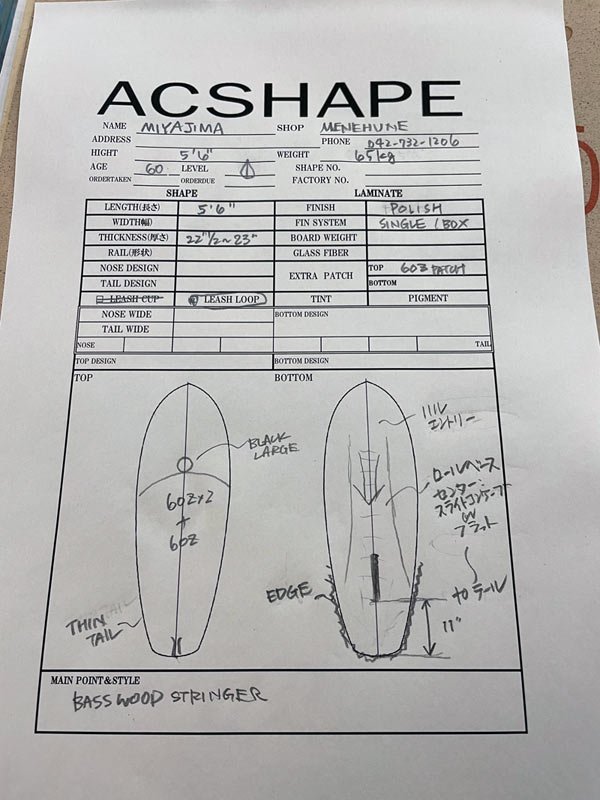 ACSHAPE
NAME MIYAJIMA SHOP MENEHUNE
ADDRESS PHONE 042-732-1206
HIGHT 5'6" WEIGHT 65kg
AGE 60 LEVEL SHAPE NO.
ORDERTAKEN ORDERDUE FACTORY NO.
SHAPE LAMINATE
LENGTH(長さ) 5'6" FINISH POLISH
WIDTH(幅) FIN SYSTEM SINGLE / BOX
THICKNESS(厚さ) 22"1/2~23" BOARD WEIGHT
RAIL(形状) GLASS FIBER
NOSE DESIGN EXTRA PATCH TOP 6OZ PATCH
TAIL DESIGN BOTTOM
LEASH CUP LEASH LOOP TINT PIGMENT
NOSE WIDE BOTTOM DESIGN
TAIL WIDE
NOSE TAIL
TOP DESIGN BOTTOM DESIGN
TOP BOTTOM
BLACK
LARGE
6OZ×2
+
6OZ
THIN
TAIL
エントリー
ロールベース
センター:
スライトコンケーブ
or
フラット
EDGE
11"
MAIN POINT&STYLE
BASSWOOD STRINGER